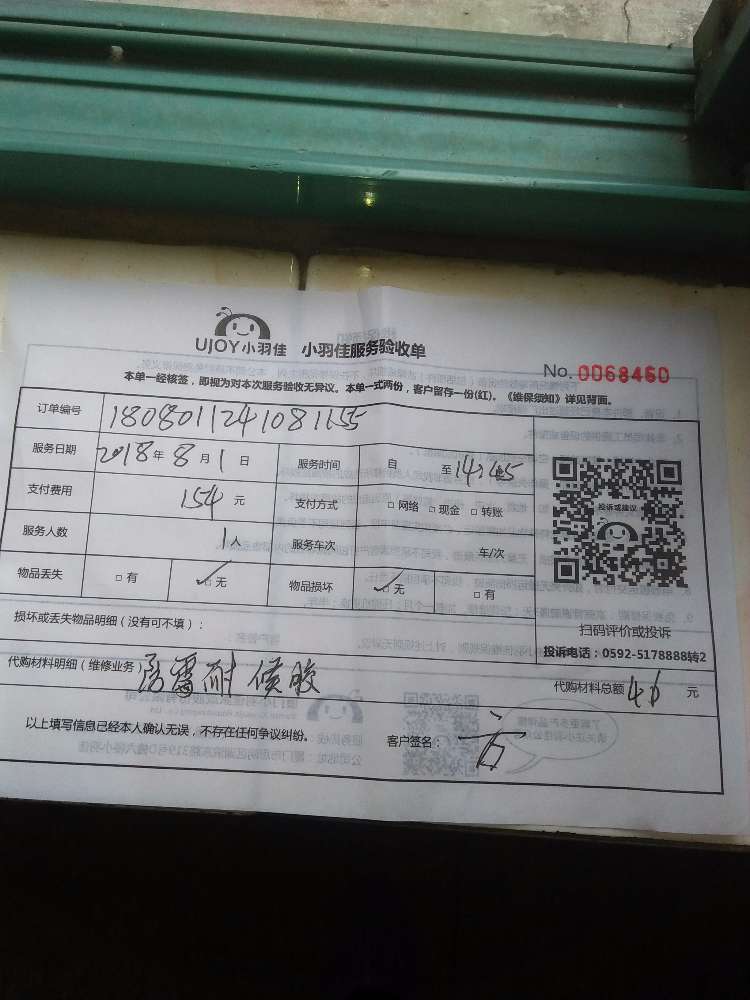 UJOY小羽佳 小羽佳服务验收单
No. 0068460
本单一经核签，即视为对本次服务验收无异议。本单一式两份，客户留存一份(红)。《维保须知》详见背面。
订单编号 1808011241081155
服务日期 2018年8月1日 服务时间 自 至14:45
支付费用 154元 支付方式 □网络 □现金 □转账
投诉或建议
服务人数 1人 服务车次 车/次
物品丢失 □有 ✓□无 物品损坏 ✓□无 □有
损坏或丢失物品明细（没有可不填）：
扫码评价或投诉
投诉电话：0592-5178888转2
代购材料明细（维修业务） 雷耐候胶
代购材料总额 46 元
以上填写信息已经本人确认无误，不存在任何争议纠纷。 客户签名：